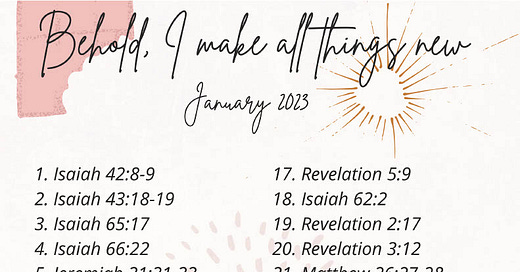 Behold, I make all things new
January 2023
1. Isaiah 42:8-9
2. Isaiah 43:18-19
3. Isaiah 65:17
4. Isaiah 66:22
5. Jeremiah
17. Revelation 5:9
18. Isaiah 62:2
19. Revelation 2:17
20. Revelation 3:12
21. Matthew 26:27-28